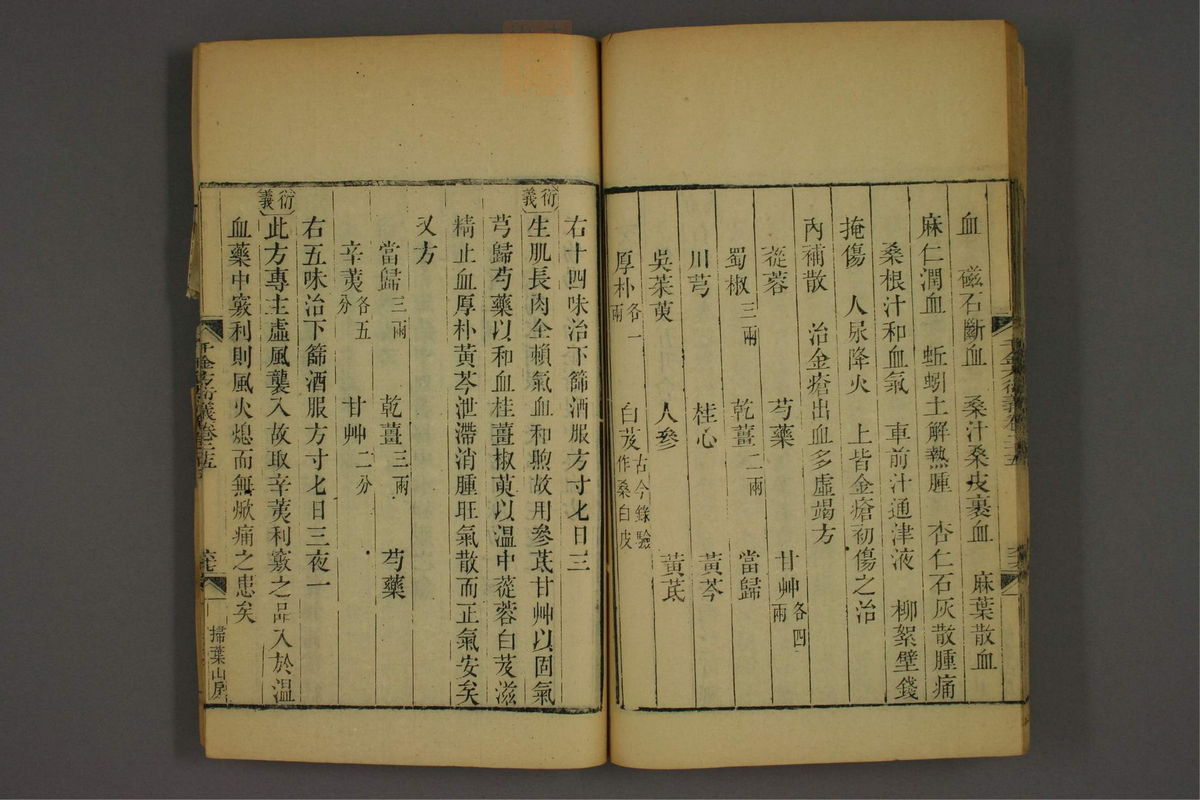 血　磁石斷血　桑汁桑皮裹血　麻葉散血
麻仁潤血　蚯蚓土解熱腫　杏仁石灰散腫痛
桑根汁和血氣　車前汁通津液　柳絮壁錢
掩傷　人尿降火　上皆金瘡初傷之治
內補散　治金瘡出血多虛竭方
蓯蓉　芍藥　甘艸各四兩
蜀椒三兩　乾薑二兩　當歸
川芎　桂心　黃芩
吳茱萸　人參　黃芪
厚朴各一兩　白芨古今錄驗作桑白皮
右十四味治下篩酒服方寸匕日三
衍義　生肌長肉全賴氣血和煦故用參芪甘艸以固氣
芎歸芍藥以和血桂薑椒萸以溫中蓯蓉白芨滋
精止血厚朴黃芩泄滯消腫旺氣散而正氣安矣
又方
當歸三兩　乾薑三兩　芍藥
辛荑各五分　甘艸二分
右五味治下篩酒服方寸匕日三夜一
衍義　此方專主虛風襲入故取辛荑利竅之品入於溫
血藥中竅利則風火熄而無焮痛之患矣
千金方衍義卷二十五
掃葉山房